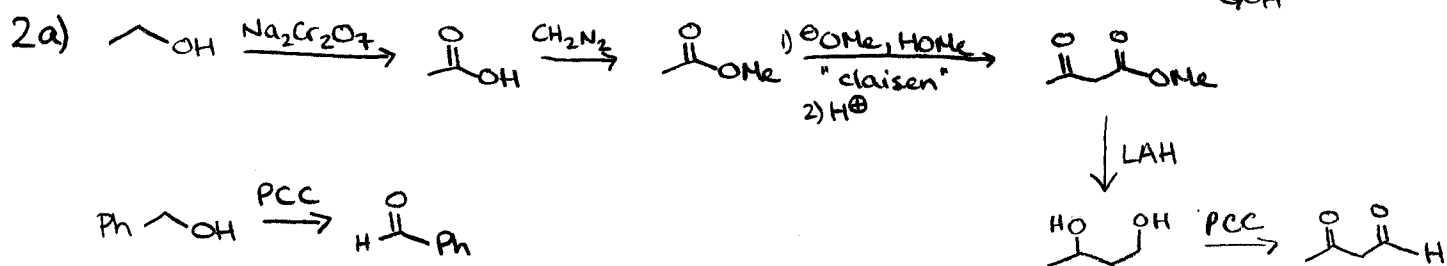 2a)
OH Na₂Cr₂O₇ O OH CH₂N₂ O OMe 1) ⊖OMe, HOMe O O OMe
"claisen"
2) H⊕
LAH
Ph OH PCC H O Ph
HO OH PCC O O H